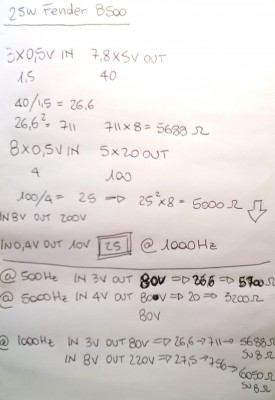 25W Fender B500
3x0,5V IN 7,8x5V OUT
1,5 40
40/1,5 = 26,6
26,6² = 711 711x8 = 5688 Ω
8x0,5V IN 5x20 OUT
4 100
100/4 = 25 => 25²x8 = 5000 Ω
IN 8V OUT 200V
IN 0,4V OUT 10V 25 @ 1000Hz
@ 500Hz IN 3V OUT 80V => 26,6 => 5700 Ω
@ 5000Hz IN 4V OUT 80V => 20 => 3200 Ω
80V
@ 1000Hz IN 3V OUT 80V => 26,6 → 711 → 5688 Ω
SU 8 Ω
IN 8V OUT 220V => 27,5 → 756 → 6050 Ω
SU 8 Ω